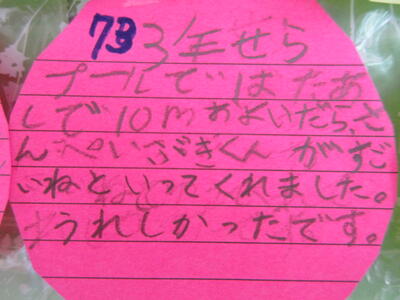 73 3年せら
プールでばたあ
しで10mおよいだら、さ
んぺいいぶきくんがすご
いねといってくれました。
うれしかったです。